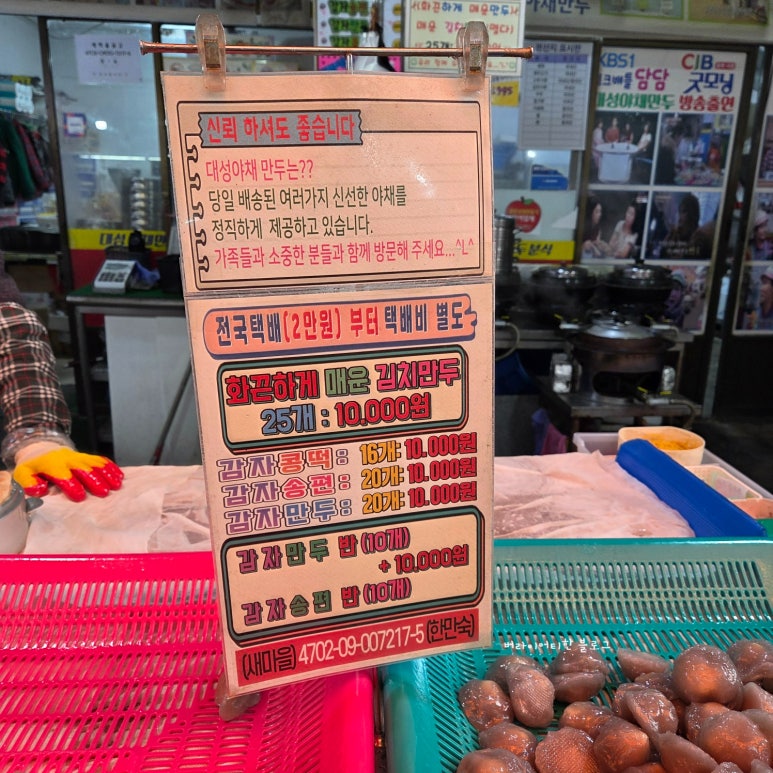 화끈하게 매운만두
매운 김
25개
야채만두
원산지 표시판
KBS1
CJB
굿모닝
담담
대성야채만두 방송출연
신뢰 하셔도 좋습니다
대성야채 만두는??
당일 배송된 여러가지 신선한 야채를
정직하게 제공하고 있습니다.
가족들과 소중한 분들과 함께 방문해 주세요...^L^
전국택배(2만원) 부터 택배비 별도
화끈하게 매운 김치만두
25개 : 10.000원
감자콩떡 : 16개: 10.000원
감자송편 : 20개: 10.000원
감자만두 : 20개: 10.000원
감자만두 반(10개)
+ 10.000원
감자송편 반(10개)
(새마을) 4702-09-007217-5 (한민숙)
버라이어티한 블로그